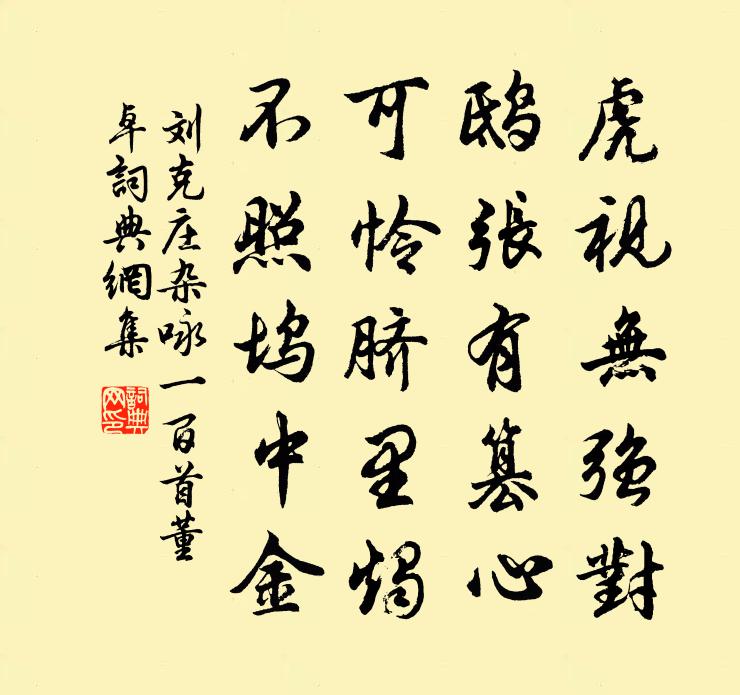 虎視無強對
鴟張有篡心
可怜臍里燭
不照塢中金
刘克庄杂咏一百首董
卓詞典網集
詞典网印